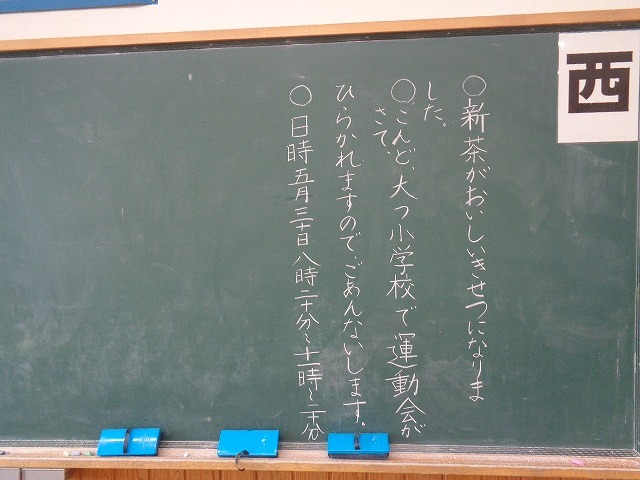 西
○新茶がおいしいきせつになりま
した。
○こんど、大つ小学校で運動会が
さて、
ひらかれますので、ごあんないします。
○日時五月三十日八時二十分~十一時~二十分